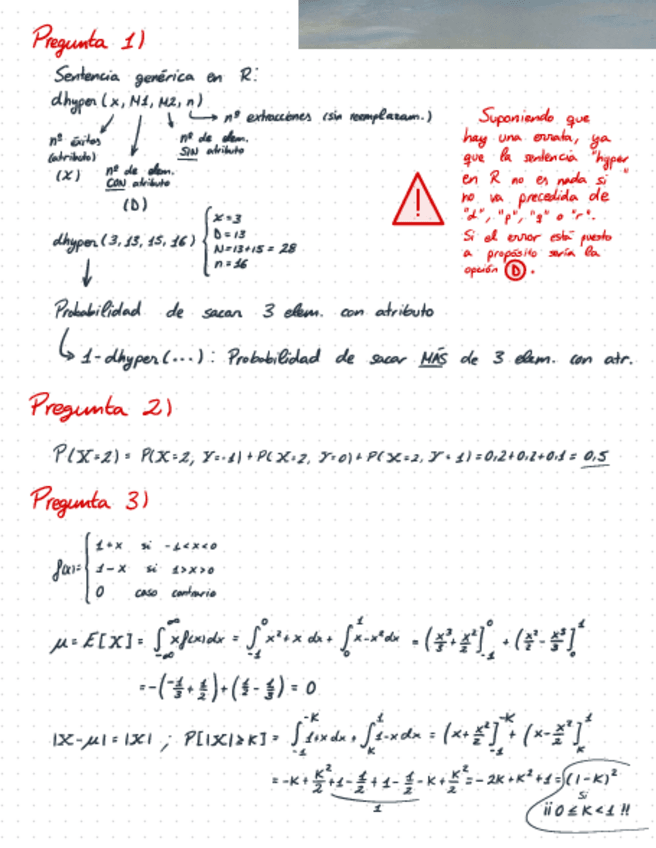 Pregunta 1)
Sentencia genérica en R:
dhyper(x, M1, M2, n)
→ nº extracciones (sin reemplazam.)
nº éxitos (atributo) (X)
nº de elem. CON atributo (D)
nº de elem. SIN atributo
dhyper(3, 13, 15, 16)
x=3
D=13
N=13+15=28
n=16
Suponiendo que
hay una errata, ya
que la sentencia "hyper"
en R no es nada si
no va precedida de
"d", "p", "q" o "r".
Si el error está puesto
a propósito sería la
opción D.
Probabilidad de sacar 3 elem. con atributo
1-dhyper(...): Probabilidad de sacar MÁS de 3 elem. con atr.
Pregunta 2)
P(X=2) = P(X=2, Y=-1) + P(X=2, Y=0) + P(X=2, Y=1) = 0,2+0,2+0,1 = 0,5
Pregunta 3)
f(x)=
1+x si -1<x<0
1-x si 1>x>0
0 caso contrario
μ = E[X] = ∫_{-∞}^{∞} xf(x)dx = ∫_{-1}^{0} x²+x dx + ∫_{0}^{1} x-x² dx = (x³/3 + x²/2]_{-1}^{0} + (x²/2 - x³/3]_{0}^{1}
= -(-1/3 + 1/2) + (1/2 - 1/3) = 0
|X-μ| = |X| ; P[|X|≥K] = ∫_{-1}^{-K} 1+x dx + ∫_{K}^{1} 1-x dx = (x + x²/2]_{-1}^{-K} + (x - x²/2]_{K}^{1}
= -K + K²/2 + 1 - 1/2 + 1 - 1/2 - K + K²/2 = -2K + K² + 1 = (1-K)²
1
si
¡¡ 0 ≤ K < 1 !!